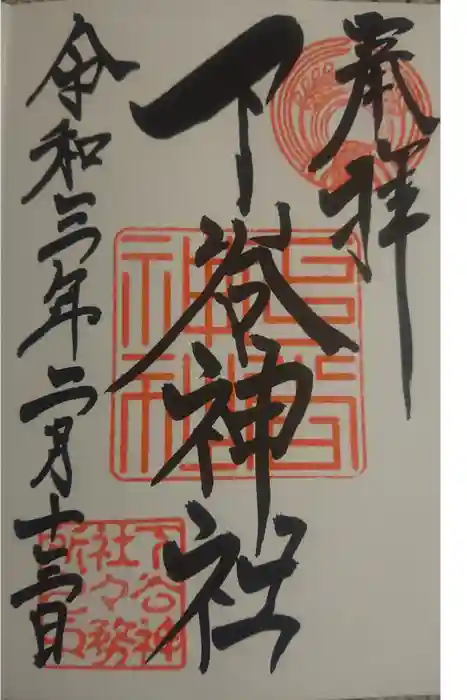 奉拝
下谷神社
令和三年二月十三日
下谷神
社々務
所之印